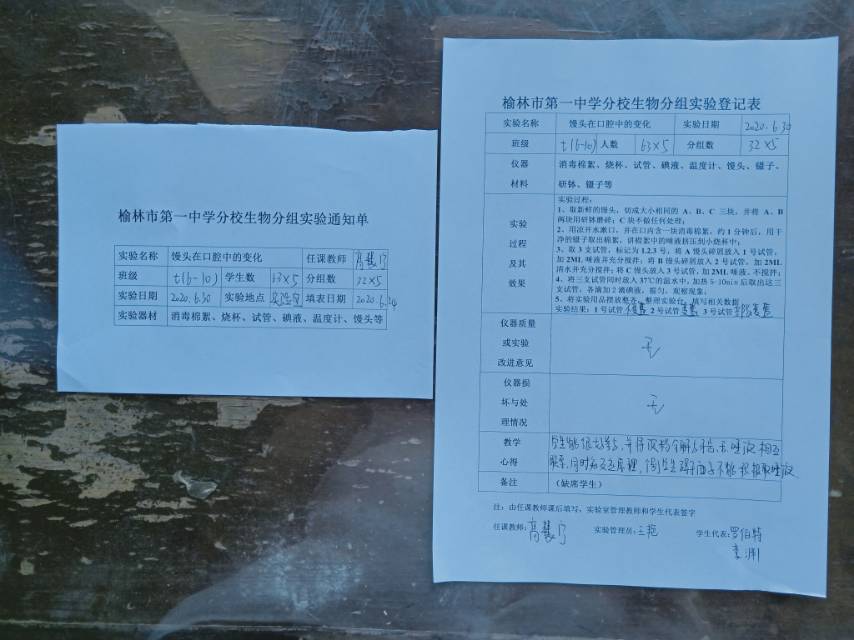 榆林市第一中学分校生物分组实验通知单
实验名称 馒头在口腔中的变化 任课教师
班级 七(6-10) 学生数 63×5 分组数 32×5
实验日期 2020.6.30 实验地点 实验室 填表日期 2020.6.24
实验器材 消毒棉絮、烧杯、试管、碘液、温度计、馒头等
榆林市第一中学分校生物分组实验登记表
实验名称 馒头在口腔中的变化 实验日期 2020.6.30
班级 七(6-10) 人数 63×5 分组数 32×5
仪器 消毒棉絮、烧杯、试管、碘液、温度计、馒头、镊子、
材料 研钵、镊子等
实验过程:
1、取新鲜的馒头,切成大小相同的 A、B、C 三块,并将 A、B
两块用研钵磨碎;C 块不做任何处理;
2、用凉开水漱口,并在口内含一块消毒棉絮,约 1 分钟后,用干
净的镊子取出棉絮,讲棉絮中的唾液挤压到小烧杯中;
3、取 3 支试管,标记为 1.2.3 号,将 A 馒头碎屑放入 1 号试管,
加 2ML 唾液并充分搅拌;将 B 馒头碎屑放入 2 号试管,加 2ML
清水并充分搅拌;将 C 馒头放入 3 号试管,加 2ML 唾液,不搅拌;
4、将三支试管同时放入 37℃的温水中,加热 5-10min 后取出这三
支试管,各滴加 2 滴碘液,摇匀,观察现象。
5、将实验用品摆放整齐,整理实验台,填写相关数据
实验结果:1 号试管 2 号试管 变蓝 3 号试管
实验
过程
及其
效果
仪器质量
或实验
改进意见
无
仪器损
坏与处
理情况
无
教学
心得
备注 (缺席学生)
注:由任课教师课后填写,实验室管理教师和学生代表签字
任课教师: 实验管理员: 学生代表:罗伯特